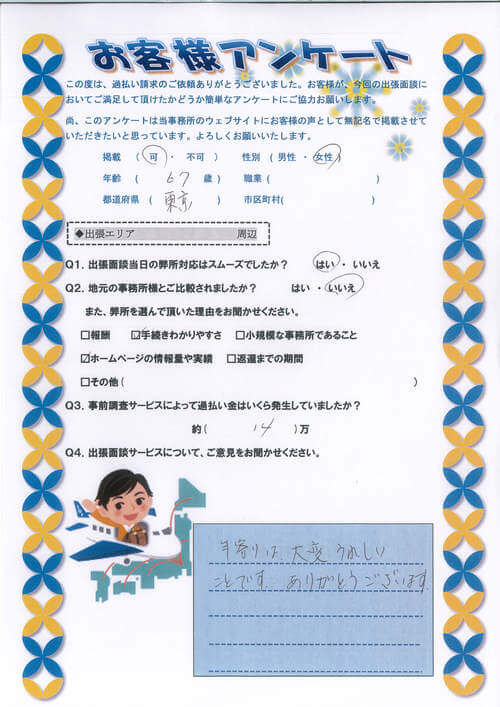 お客様アンケート
この度は、過払い請求のご依頼ありがとうございました。お客様が、今回の出張面談に
おいてご満足して頂けたかどうか簡単なアンケートにご協力お願いします。
尚、このアンケートは当事務所のウェブサイトにお客様の声として無記名で掲載させて
いただきたいと思っています。よろしくお願いいたします。
掲載 ( 可 ・ 不可 ) 性別 ( 男性 ・ 女性 )
年齢 ( 67 歳 ) 職業 ( )
都道府県 ( 東京 ) 市区町村( )
◆出張エリア 周辺
Q1. 出張面談当日の弊所対応はスムーズでしたか? はい ・ いいえ
Q2. 地元の事務所様とご比較されましたか? はい ・ いいえ
また、弊所を選んで頂いた理由をお聞かせください。
□報酬 ☑手続きわかりやすさ □小規模な事務所であること
☑ホームページの情報量や実績 □返還までの期間
□その他( )
Q3. 事前調査サービスによって過払い金はいくら発生していましたか?
約( 14 )万
Q4. 出張面談サービスについて、ご意見をお聞かせください。
年寄りは 大変 うれしい
ことです ありがとうございます